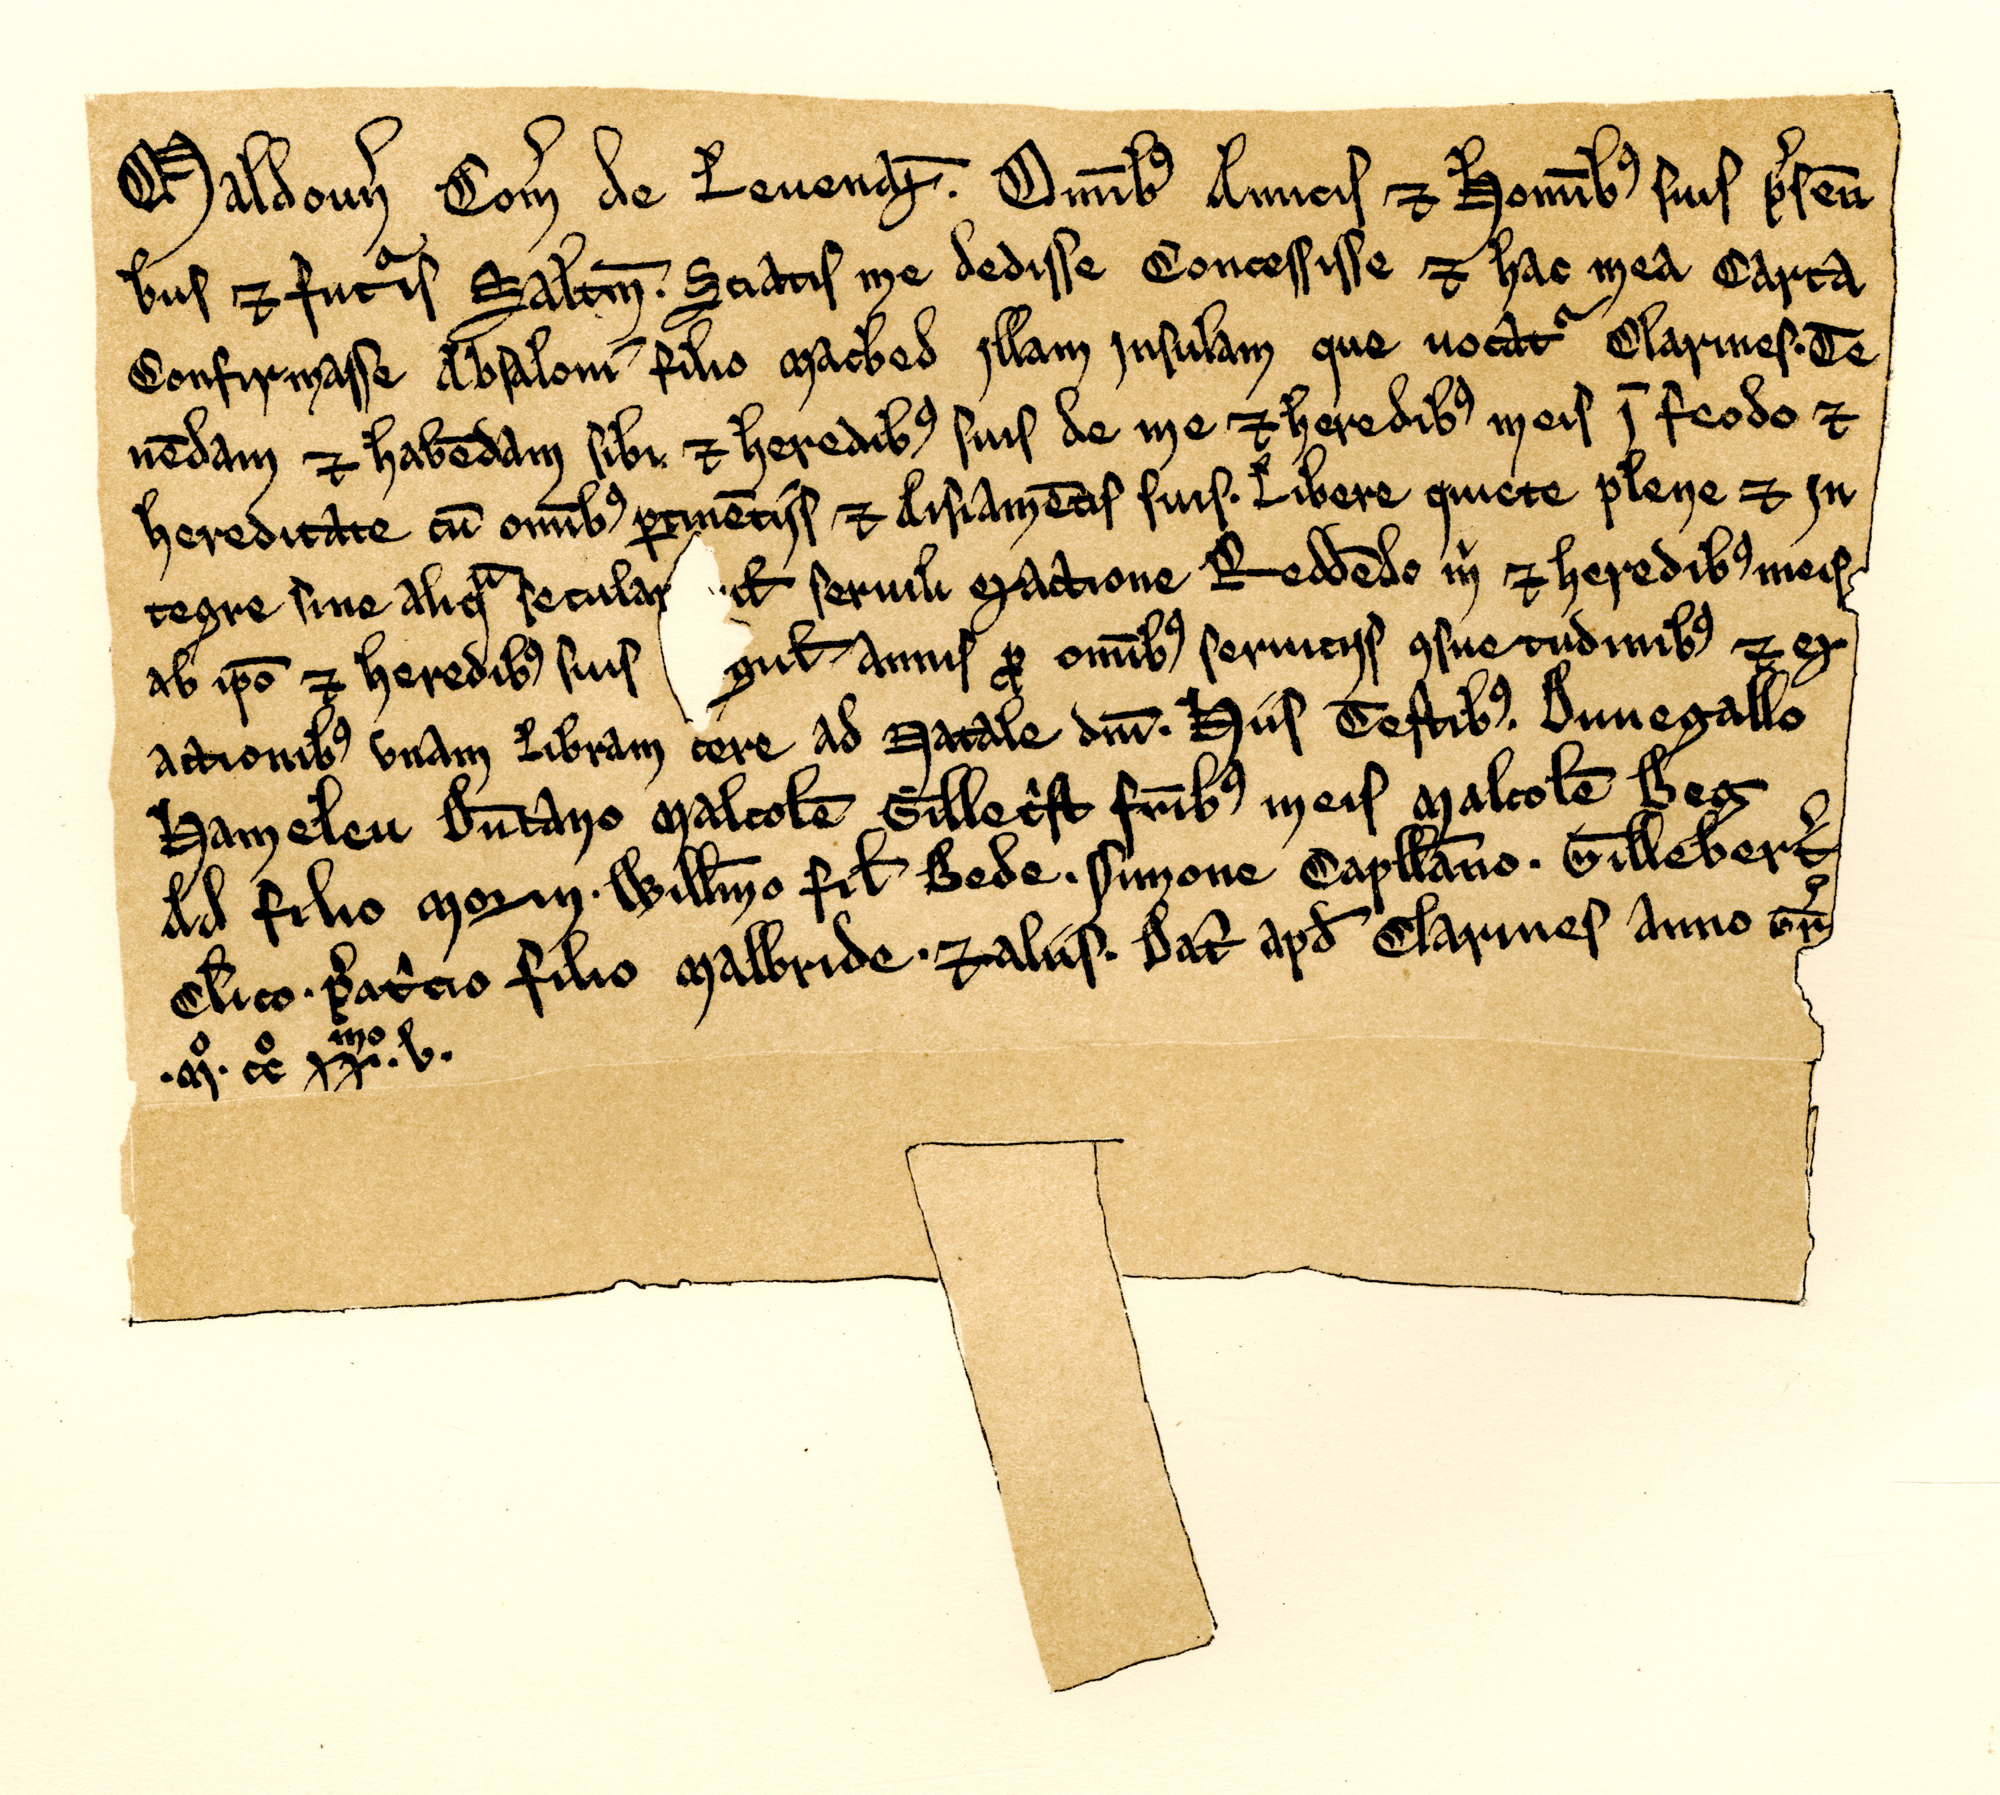 Maldouñ Com̃ de Leuenax̄. Om̄ib⁹ Amicis ⁊ Hom̄ib⁹ suis p̃sen̄
bus ⁊ futᵃis Salt̃m̄. Sciatis me dedisse Concessisse ⁊ hac mea Carta
Confirmasse Absalon̄ filio macbed jllam jnsulam que uocat᷑ Clarines. Te
nēdam ⁊ habēdam sibi ⁊ heredib⁹ suis de me ⁊ heredib⁹ meis j̄ feodo ⁊
hereditate cū om̄ib⁹ ꝑtinētijs ⁊ Aisiamētis suis. Libere quiete plene ⁊ jn
tegre sine aliqᵃ secular ul̃ seruili exactione Reddēdo m̃ ⁊ heredib⁹ meis
ab ip̄o ⁊ heredib⁹ suis gul̃ annis ꝓ om̄ib⁹ seruitijs ꝯsuetudinib⁹ ⁊ ex
actionib⁹ vnam Libram cere ad Natale dn̄i. Hiis Testib⁹. Dunegallo
Hameleu Dūcano Malcolē Gillec̃st fr̄ib⁹ meis Malcolē Beg
Ad filio Morin. Will̃mo fil̃ Bede. Simone Capll̃ano. GilleberT̃
Cl̃ico. P̃at̃cio filio Malbride. ⁊ aliis. Dat̃ apđ Clarines anno gr̃
.m̊. cc̊ xxᵐᵒ. v.